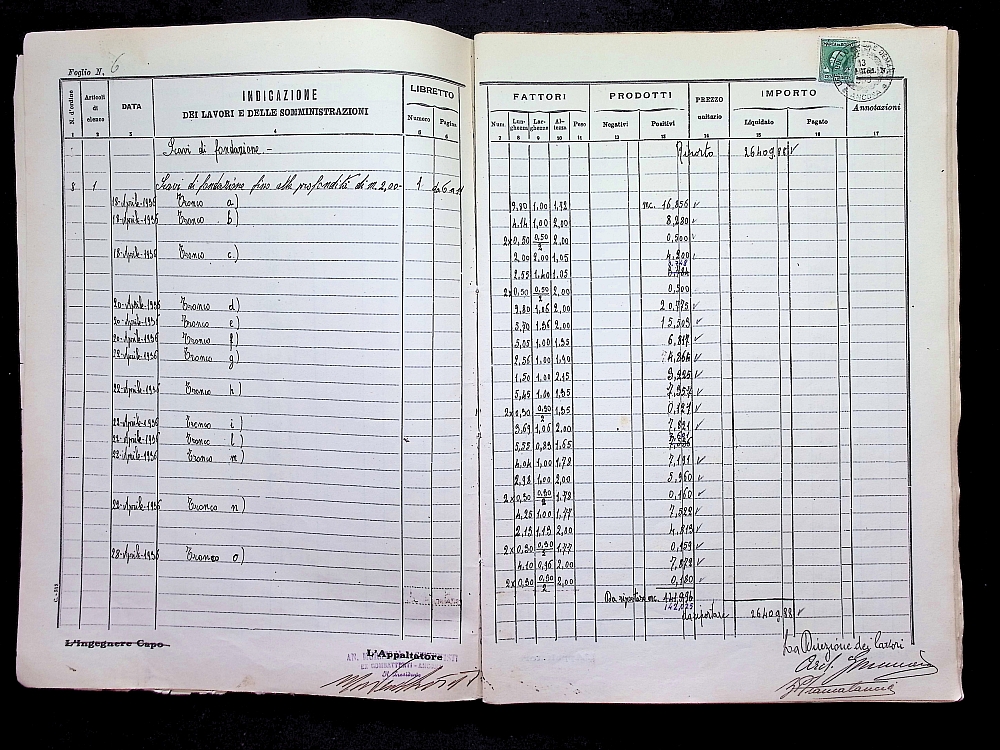 Foglio N. 6
N. d'ordine
Articoli di elenco
DATA
INDICAZIONE
DEI LAVORI E DELLE SOMMINISTRAZIONI
LIBRETTO
Numero Pagina
1 2 3 4 5 6
Scavi di fondazione.-
8 1 Scavi di fondazione fino alla profondità di m. 2,00- 1 da 6 a 11
18-Aprile-1936 Tronco a)
18-Aprile-1936 Tronco b)
18-Aprile-1936 Tronco c)
20-Aprile-1936 Tronco d)
20-Aprile-1936 Tronco e)
20-Aprile-1936 Tronco f)
22-Aprile-1936 Tronco g)
22-Aprile-1936 Tronco h)
22-Aprile-1936 Tronco i)
22-Aprile-1936 Tronco l)
22-Aprile-1936 Tronco m)
22-Aprile-1936 Tronco n)
28-Aprile-1936 Tronco o)
L'Ingegnere Capo
L'Appaltatore
EX COMBATTENTI - ANCONA
Il Presidente
FATTORI PRODOTTI PREZZO unitario IMPORTO Annotazioni
Num Lunghezza Larghezza Altezza Peso Negativi Positivi Liquidato Pagato
7 8 9 10 11 12 13 14 15 16 17
Riporto 26409,88
9.80 1,00 1,72 mc. 16,856
4.14 1,00 2,00 8,280
2x0,50 0,50/2 2,00 0,500
2,00 2,00 1,05 4,200
2,55 1,40 1,05 3,748
2x0,50 0,50/2 2,00 0,500
9,80 1,06 2,00 20,775
5,70 1,36 2,00 15,503
5,05 1,00 1,35 6,817
2,56 1,00 1,90 4,864
1,50 1,00 2,15 3,225
5,45 1,00 1,35 7,357
2x0,30 0,30/2 1,35 0,127
3,69 1,06 2,00 7,821
5,55 0,83 1,65
4,04 1,00 1,78 7,191
2,98 1,00 2,00 5,960
2x0,30 0,30/2 1,78 0,160
4,25 1,00 1,77 7,522
2,13 1,13 2,00 4,813
2x0,30 0,30/2 1,77 0,159
4,10 0,96 2,00 7,872
2x0,30 0,30/2 2,00 0,180
Da riportare mc. 141,996
142,025
da riportare 26409,88
La Direzione dei Lavori